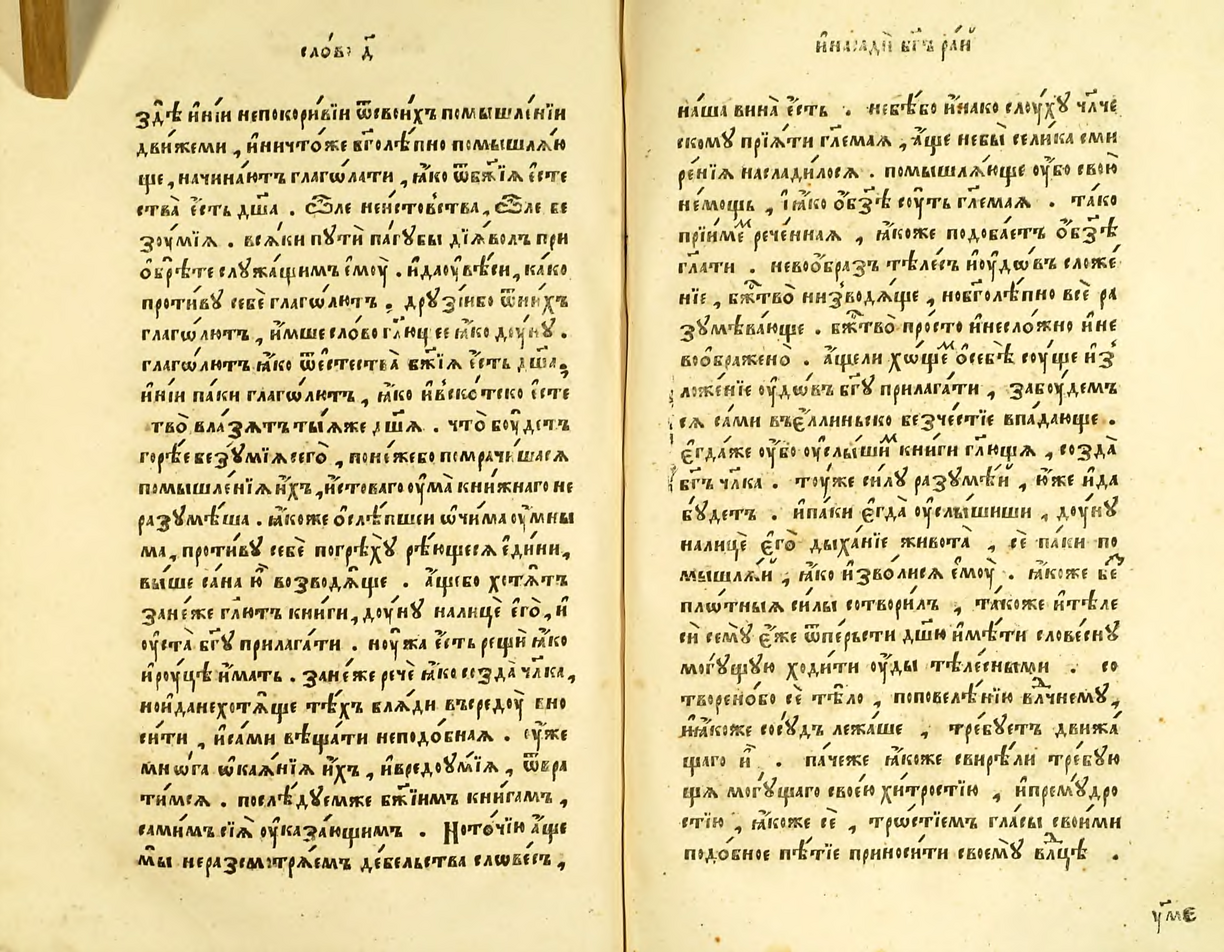 сло́во д҃
здѣ̀ и҆ні́и непокори́вїи ѿсвои́хъ помышле́нїи
дви́жеми , и҆ничто́же бг҃олѣ́пно помышлѧ́ю
ще , начина́ютъ глаго́лати , ꙗ҆́ко ѿбж҃їѧ є҆сте
ства̀ є҆́сть дш҃а . ѽле неи́стовства , ѽле бе
зоу́мїѧ . всѧ́ки пꙋтѝ па́гꙋбы дїѧ́волъ при
ѡ҆брѣ́те слꙋжа́щимъ є҆моу̀ . и҆даоувѣ́си , ка́ко
проти́вꙋ себѐ глаго́лютъ . дрꙋзі́ибо ѿни́хъ
глаго́лютъ , и҆́мше сло́во гл҃ющее ꙗ҆́ко доу́нꙋ .
глаго́лютъ ꙗ҆́ко ѿестества̀ бж҃їѧ є҆́сть дш҃а ,
и҆ні́и па́ки глаго́лютъ , ꙗ҆́ко и҆вско́тско є҆сте
тво̀ вла́зѧтъ ты́ѧже дш҃ѧ . что̀ боу́детъ
го́рѣе безꙋ́мїѧ сего̀ , поне́жебо помрачи́шасѧ
помышле́нїѧ и҆́хъ , и҆́стоваго оу҆ма̀ кни́жнаго не
разꙋмѣ́ша . ꙗ҆́коже ѡ҆слѣ́пшеи ѻ҆чи́ма оу҆́мны
ма , проти́вꙋ себѐ погрѣ́хꙋ рѣ́ющесѧ є҆ди́ни ,
вы́ше са́на ю҆̀ возводѧ́ще . а҆́щебо хотѧ́тъ
зане́же гл҃ютъ кни́ги , доу́нꙋ налицѐ є҆го̀ , и҆
оу҆ста̀ бг҃ꙋ прилага́ти . ноу́жа є҆́сть рещѝ ꙗ҆́ко
и҆роу́цѣ и҆́мать . зане́же речѐ ꙗ҆́ко созда̀ чл҃ка ,
нои҆данехотѧ́ще тѣ́хъ блѧ́ди въсредоу̀ вно
си́ти , и҆са́ми вѣща́ти неподо́бнаѧ . оу҆́же
мнѡ́га ѡ҆каѧ́нїѧ и҆́хъ , и҆вредоу́мїѧ , ѿвра
ти́мсѧ . послѣ́дꙋемже бж҃їимъ кни́гамъ ,
сами́мъ сїѧ̀ оу҆ка́зающимъ . Ното́чїю а҆́ще
мы̀ неразсмотрѧ́емъ де́бельства слове́съ ,
и҆насадѝ бг҃ъ ра́й
на́ша вина̀ є҆́сть . небѣ́бо и҆на́ко слоу́хꙋ чл҃че
скомꙋ прїѧ́ти гл҃емаѧ , а҆́ще небы̀ селика сми
ре́нїѧ наслади́лосѧ . помышлѧ́юще оу҆́бо свою̀
не́мощь , і҆ ꙗ҆́ко ѡ҆бз҃ѣ соу́ть гл҃емаѧ . та́ко
прїи́меᷨ рече́ннаѧ , ꙗ҆́коже подоба́етъ ѡ҆бз҃ѣ
гл҃ати . невоо́бразъ тѣле́съ и҆оу́дѡвъ сложе
нїе , бж҃тво̀ низво́дѧще , нобг҃олѣ́пно всѐ ра
зꙋмѣва́юще . бж҃тво̀ про́сто и҆несло́жно и҆не
воображено̀ . а҆́щели хо́щеᷨ ѡ҆себѣ̀ соу́ще и҆з̾
ложе́нїе оу҆́дѡвъ бг҃ꙋ прилага́ти , забоу́демъ
сѧ са́ми въе́ллиньско безче́стїе впа́дающе .
є҆гда́же оу҆́бо оу҆слы́шиᷨ кни́ги гл҃ющѧ , созда̀
бг҃ъ чл҃ка . тоу́же си́лꙋ разꙋмѣ́й , ю҆́же и҆да
бꙋ́детъ . и҆па́ки є҆гда̀ оу҆слы́шиши , доу́нꙋ
налицѐ є҆го̀ дыха́нїе живота̀ , сѐ па́ки по
мышлѧ́й , ꙗ҆́ко и҆зво́лисѧ є҆моу̀ . ꙗ҆́коже беᷥ
пло́тныѧ си́лы сотвори́лъ , та́коже и҆тѣле
сѝ семꙋ̀ є҆́же ѿпе́рьсти дш҃ю и҆мѣ́ти слове́снꙋ
могꙋ́щꙋю ходи́ти оу҆́ды тѣле́сными . со
творено́бо сѐ тѣ́ло , поповелѣ́нїю влⷣчнемꙋ ,
и҆ꙗ҆́коже сосꙋ́дъ лежа́ше , тре́бꙋетъ дви́жа
щаго и҆̀ . па́чеже ꙗ҆́коже свирѣ́ли тре́бꙋю
щѧ могꙋ́щаго свое́ю хи́тростїю , и҆премꙋ́дро
стїю , ꙗ҆́коже сѐ , тро́стїемъ гла́сы свои́ми
подо́бное пѣ́тїе приноси́ти своемꙋ̀ влⷣцѣ .